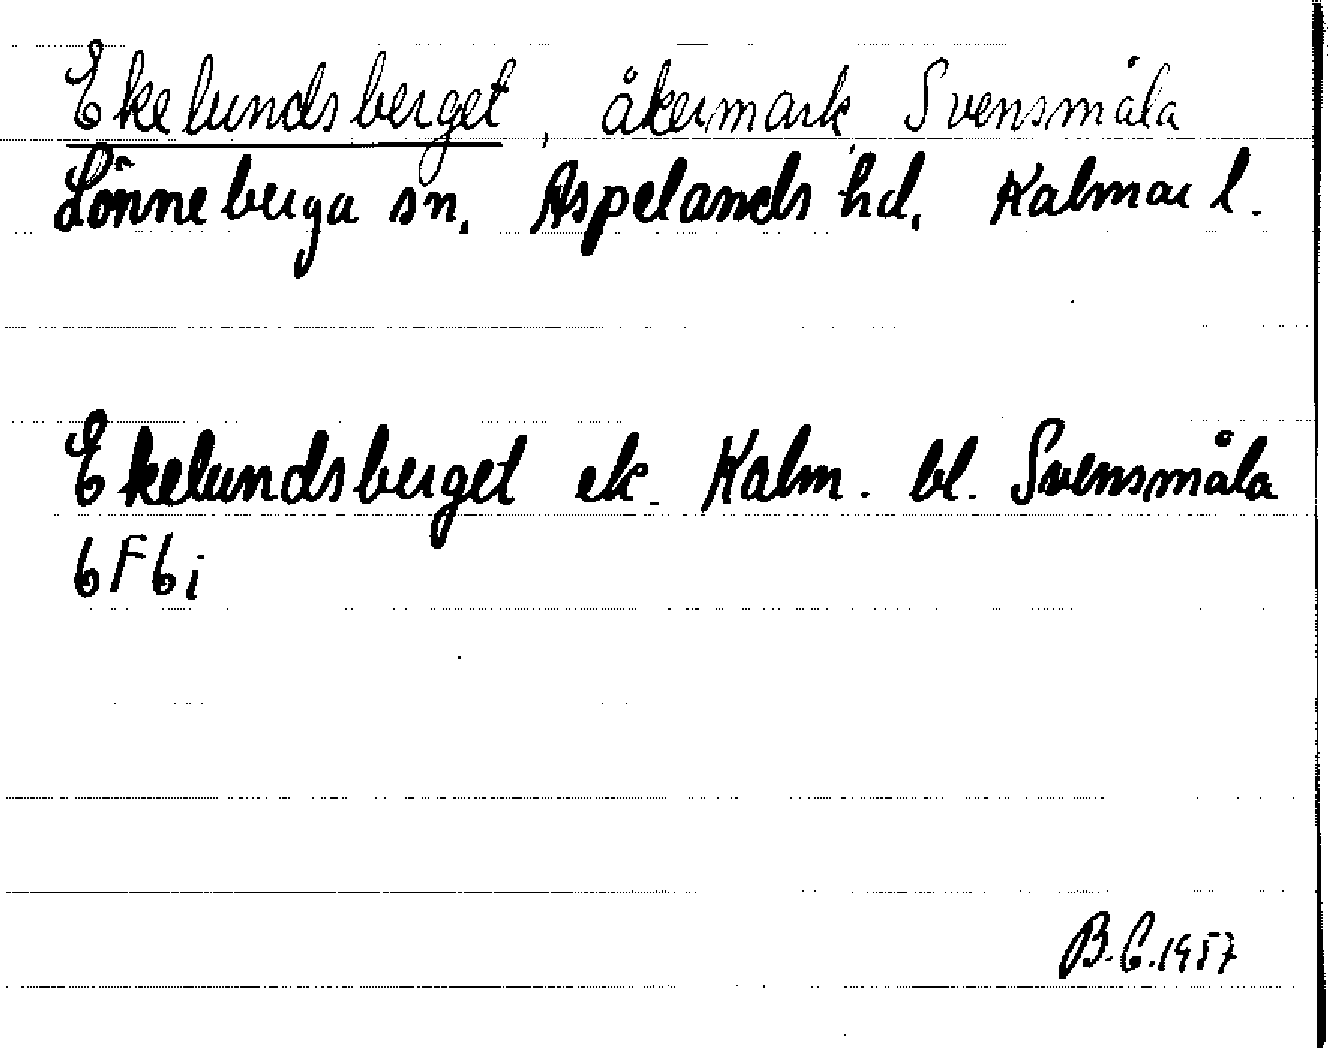 Ekelundsberget, åkermark, Svensmåla
Lönneberga sn. Aspelands hd. Kalmar l.
Ekelundsberget ek. Kalm. bl. Svensmåla
6F6i
B.C.1957